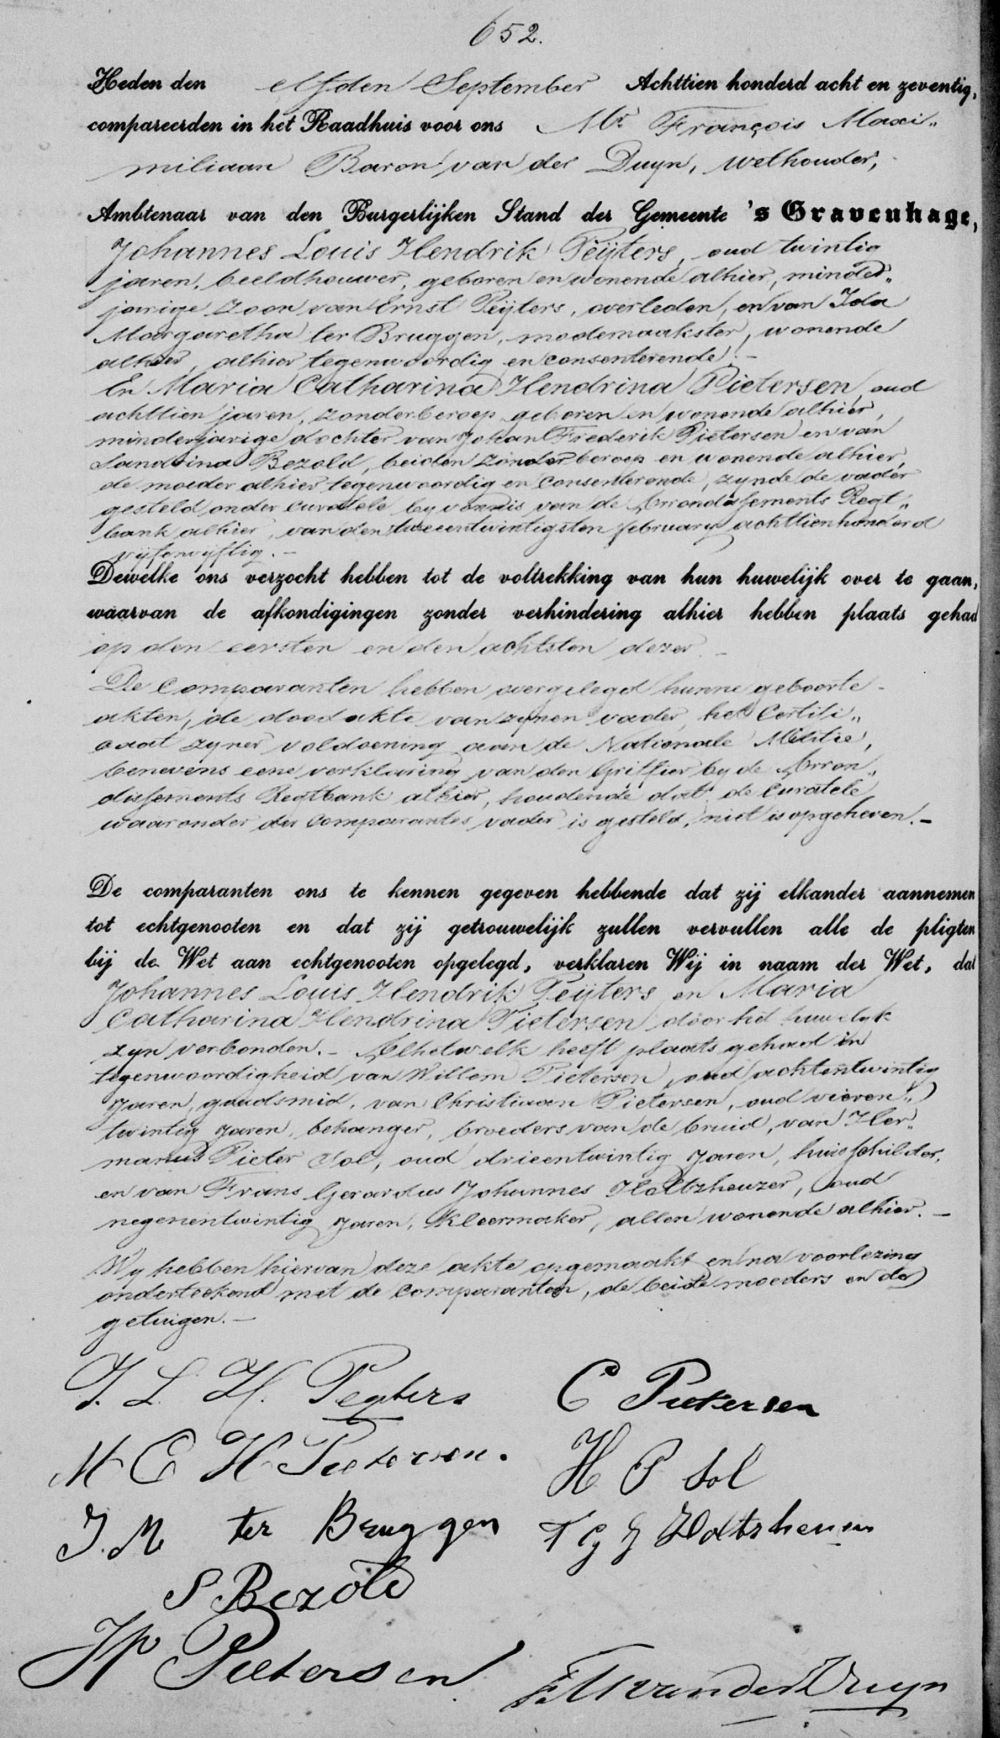 652.
Heden den elfden September Achttien honderd acht en zeventig,
compareerden in het Raadhuis voor ons Mr François Maxi„
miliaan Baron van der Duyn, wethouder,
Ambtenaar van den Burgerlijken Stand der Gemeente 's Gravenhage,
Johannes Louis Hendrik Peÿters, oud twintig
jaren, beeldhouwer, geboren en wonende alhier, minder„
jarige zoon van Ernst Peÿters, overleden, en van Ida
Margaretha ter Bruggen, modemaakster, wonende
alhier, alhier tegenwoordig en consenterende. –
En Maria Catharina Hendrina Pietersen, oud
achttien jaren, zonder beroep, geboren en wonende alhier,
minderjarige dochter van Johan Frederik Pietersen en van
Sandrina Bezold, beiden zonder beroep en wonende alhier,
de moeder alhier tegenwoordig en consenterende, zynde de vader
gesteld onder curatele by vonnis van de Arrondissements Regt„
bank alhier, van den tweeentwintigsten february achttienhonderd
vyfenvyftig. –
Dewelke ons verzocht hebben tot de voltrekking van hun huwelijk over te gaan,
waarvan de afkondigingen zonder verhindering alhier hebben plaats gehad
op den eersten en den achtsten dezer. –
De Comparanten hebben overgelegd hunne geboorte-
akten, de doodakte van zynen vader, het Certifi„
caat zyner voldoening aan de Nationale Militie,
benevens eene verklaring van den Griffier by de Arron„
dissements Regtbank alhier, houdende dat de Curatele
waaronder der Comparantes vader is gesteld, niet is opgeheven. –
De comparanten ons te kennen gegeven hebbende dat zij elkander aannemen
tot echtgenooten en dat zij getrouwelijk zullen vervullen alle de pligten
bij de Wet aan echtgenooten opgelegd, verklaren Wij in naam der Wet, dat
Johannes Louis Hendrik Peÿters en Maria
Catharina Hendrina Pietersen door het huwelyk
zyn verbonden. – Al hetwelk heeft plaats gehad in
tegenwoordigheid van Willem Pietersen, oud achtentwintig
Jaren, goudsmid, van Christiaan Pietersen, oud vieren„
twintig Jaren, behanger, broeders van de bruid, van Her„
manus Pieter Sol, oud drieentwintig Jaren, huisschilder,
en van Frans Gerardus Johannes Holtzheuzer, oud
negenentwintig Jaren, kleermaker, allen wonende alhier. –
Wy hebben hiervan deze akte opgemaakt en na voorlezing
onderteekend met de Comparanten, de beide moeders en de
getuigen. –
J. L. H. Peyters C Pietersen
M C H Pietersen. H P Sol
J. M ter Bruggen F G J Holtzheuser
S Bezold
W Pietersen F M van der Duyn